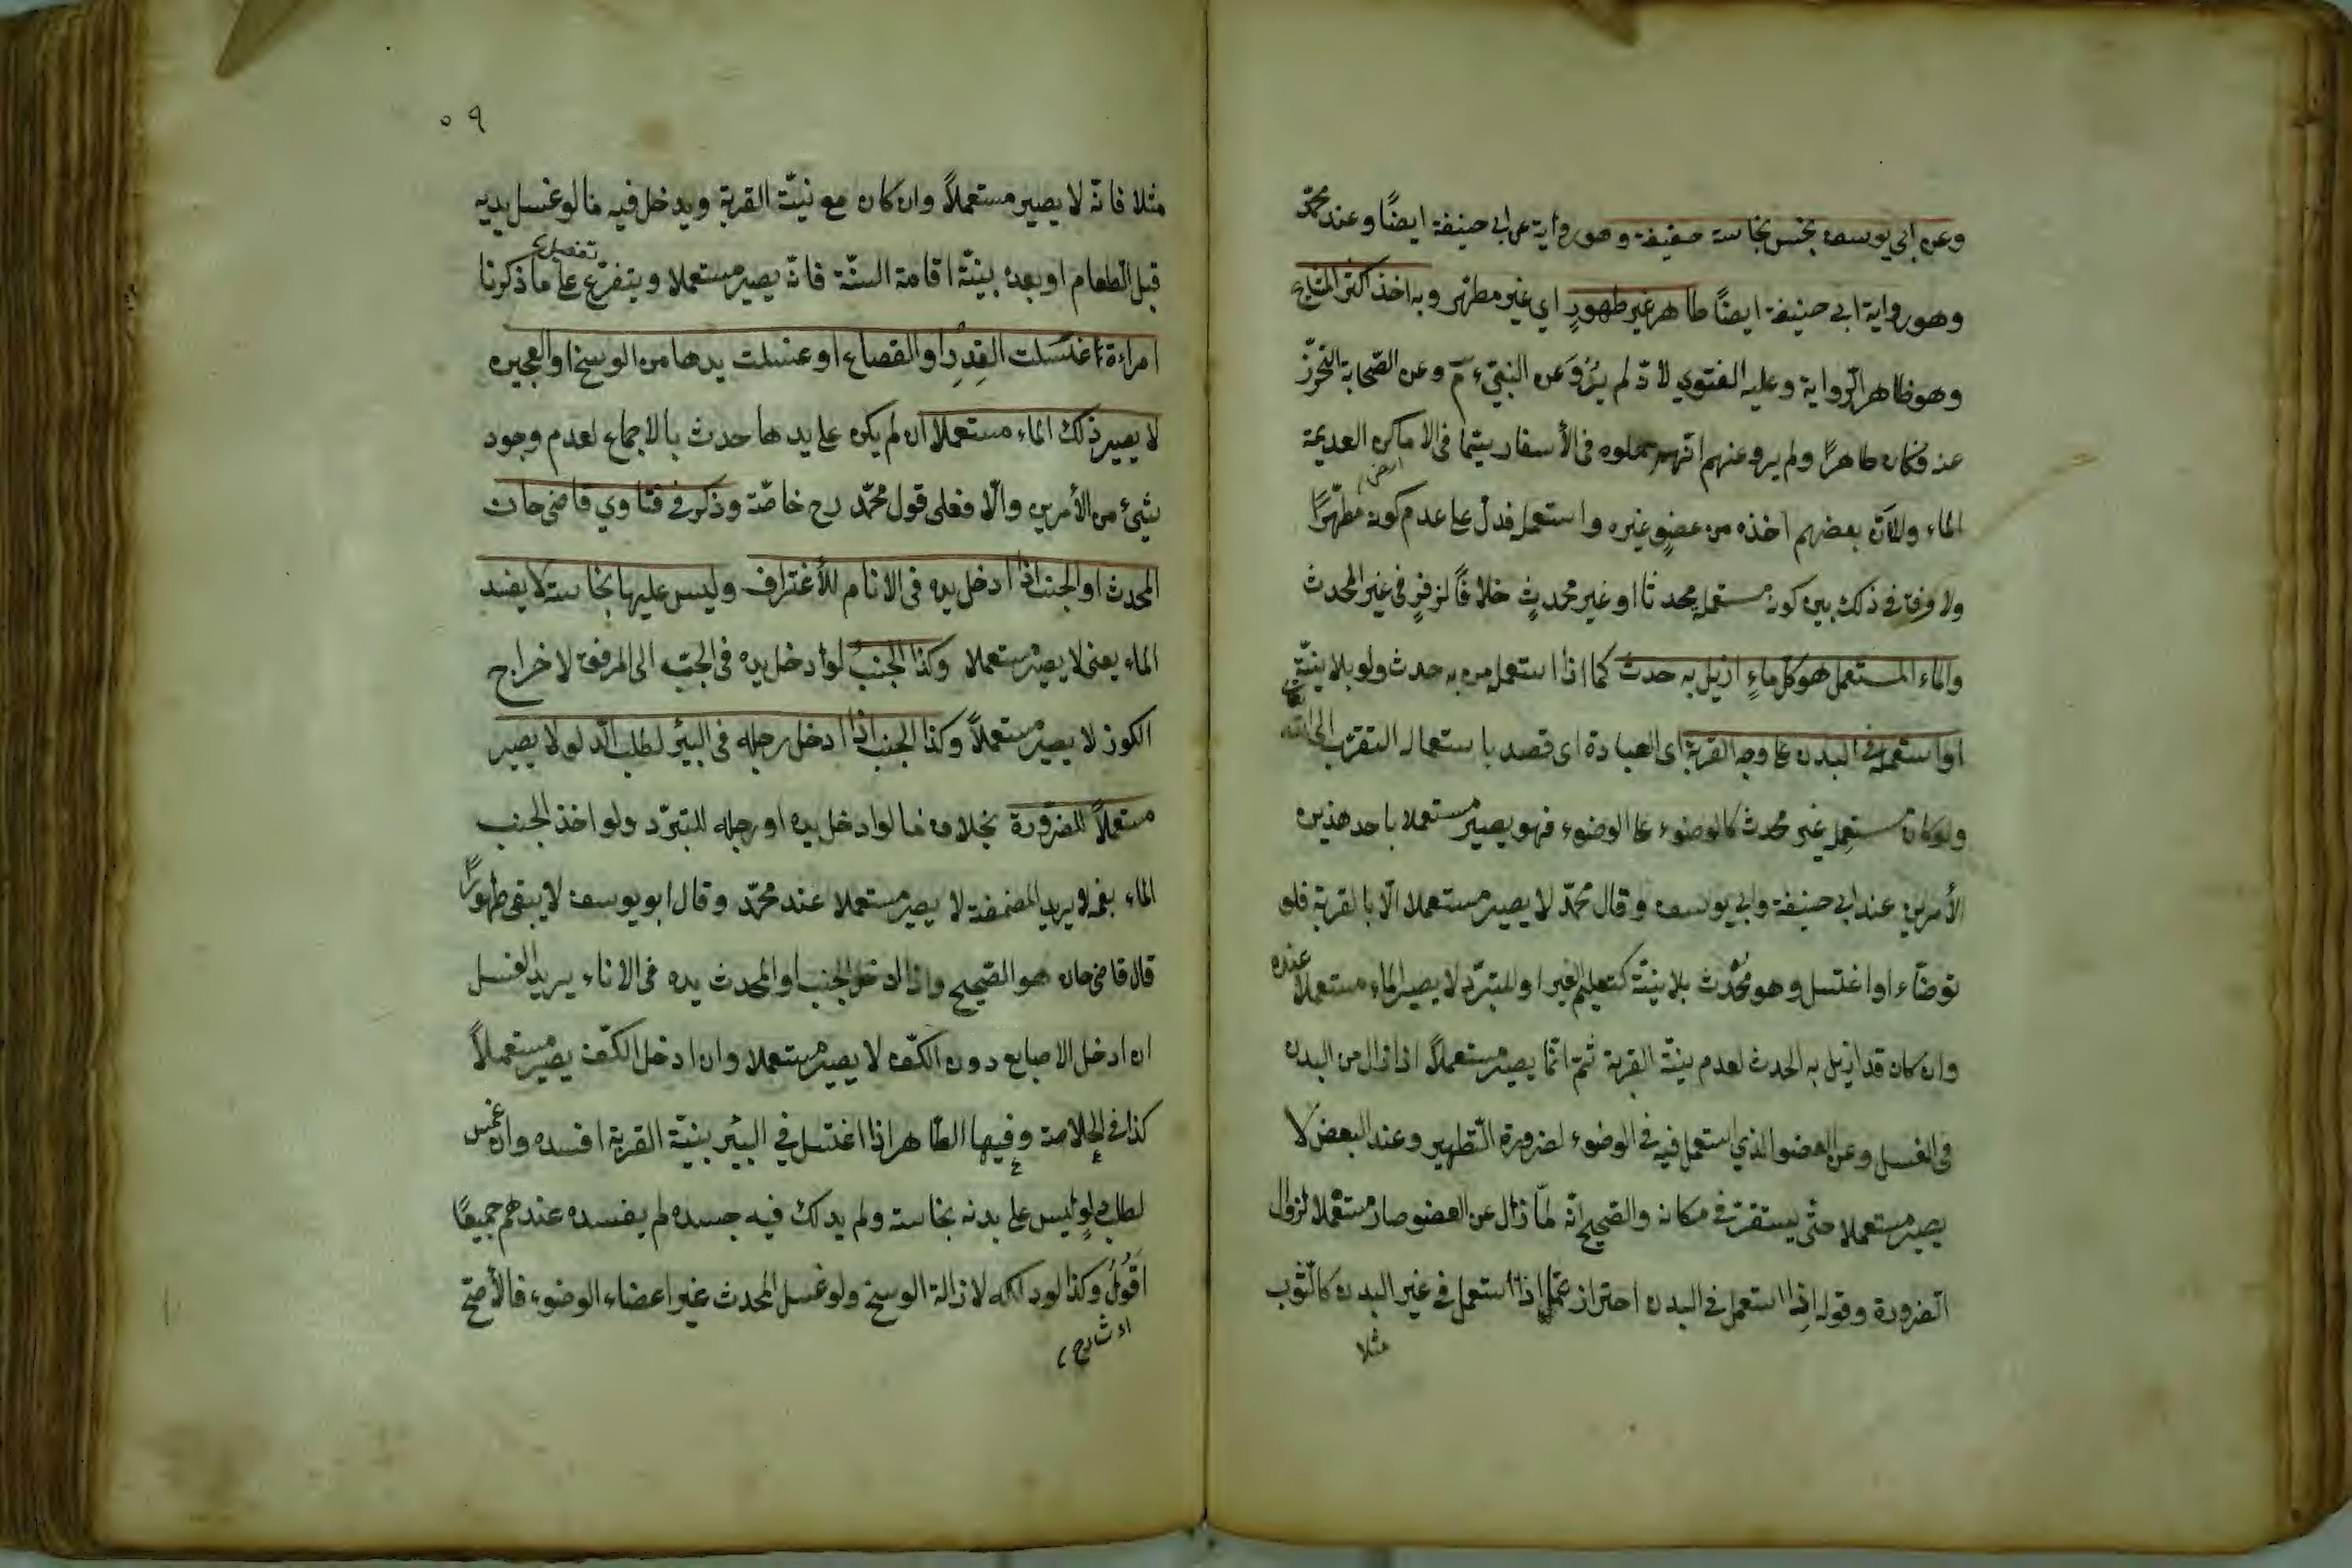 وعن ابي يوسف نجس نجاسة خفيفة وهو رواية عن ابي حنيفة ايضًا وعند محمّد
وهو رواية ابي حنيفة ايضًا طاهر غير طهورٍ اي غير مطهّر وبه اخذ اكثر المشايخ
وهو ظاهر الرّواية وعليه الفتوي لانّه لم يُرْوَ عن النبيّ ءمّ وعن الصّحابة التحرّز
عنه فكان طاهرًا ولم يرو عنهم انّهم حملوه في الأسفار سيّما في الاماكن العديمة
الماء ولا بعضهم اخذه من عضوٍ غيره واستعمله فدلّ على عدم كونه مطهّرًا
ولا فرق في ذلك بين كون مستعمله محدثا او غير محدثٍ خلافًا لزفرٍ في غير المحدث
والماء المستعمل هو كل ماءٍ ازيل به حدث كما اذا استعمل من به حدث ولو بلا نيّة
او استعمل في البدن على وجه القربة اى العبادة اى قصد باستعماله التقرّب الى الله تعالى
ولو كان مستعمله غير محدث كالوضوء على الوضوء فهو يصير مستعملا باحد هذين
الأمرين عند ابي حنيفة وابي يوسف وقال محمّد لا يصير مستعملا الّا بالقربة فلو
توضّاء او اغتسل وهو مُحْدث بلا نيّة كتعليم الغير او للتبرّد لا يصير الماء مستعملاً عنده
وان كان قد ازيل به الحدث لعدم نيّة القربة ثمّ انّما يصير مستعملاً اذا زال من البدن
في الغسل وعن العضو الذي استعمل فيه في الوضوء لضرورة التطهير وعند البعض لا
يصير مستعملا حتّى يستقرّ في مكان والصّحيح انّه لمّا زال عن العضو صار مستعملا لزوال
الضرورة وقوله اذا استعمل في البدن احتراز عمّا اذا استعمل في غير البدن كالثّوب
مثلا
٥٩
مثلا فانّه لا يصير مستعملاً وان كان مع نيّة القربة ويدخل فيه ما لو غسل يديه
قبل الطعام او بعده بنيّة اقامة السنّة فانّه يصير مستعملا ويتفرّع على ما ذكرنا
امراءة اغتسلت القِدرِ او القصاع او غسلت يدها من الوسخ او العجين
لا يصير ذلك الماء مستعملا ان لم يكن على يدها حدث بالاجماع لعدم وجود
شئ من الأمرين والّا فعلى قول محمّد رح خاصّة وذكر في فتاوي قاضى خان
المحدث او الجنب اذا ادخل يده في الاناء للأغتراف وليس عليها نجاسة لا يفسد
الماء يعنى لا يصير مستعملا وكذا الجنب لو ادخل يده في الجبّ الى المرفق لاخراج
الكوز لا يصير مستعملاً وكذا الجنب اذا ادخل رجله في البئر لطلب الدّلو لا يصير
مستعملاً للضرورة بخلاف ما لو ادخل يده او رجله للتبرّد ولو اخذ الجنب
الماء بفمه لا يريد المضمضة لا يصير مستعملا عند محمّد وقال ابو يوسف لا يبقى طهورًا
قال قاضى خان هو الصّحيح واذا ادخل الجنب او المحدث يده في الاناء يريد الغسل
ان ادخل الاصابع دون الكفّ لا يصير مستعملا وان ادخل الكفّ يصير مستعملاً
كذا في الخلاصة وفيها الطّاهر اذا اغتسل في البئر بنيّة القربة افسده وان غمس
لطلب دلوٍ ليس على بدنه نجاسة ولم يدلك فيه جسده لم يفسده عندهم جميعًا
اَقُولُ وكذا لو دلكه لازالة الوسخ ولو غسل المحدث غير اعضاء الوضوء فالأصحّ